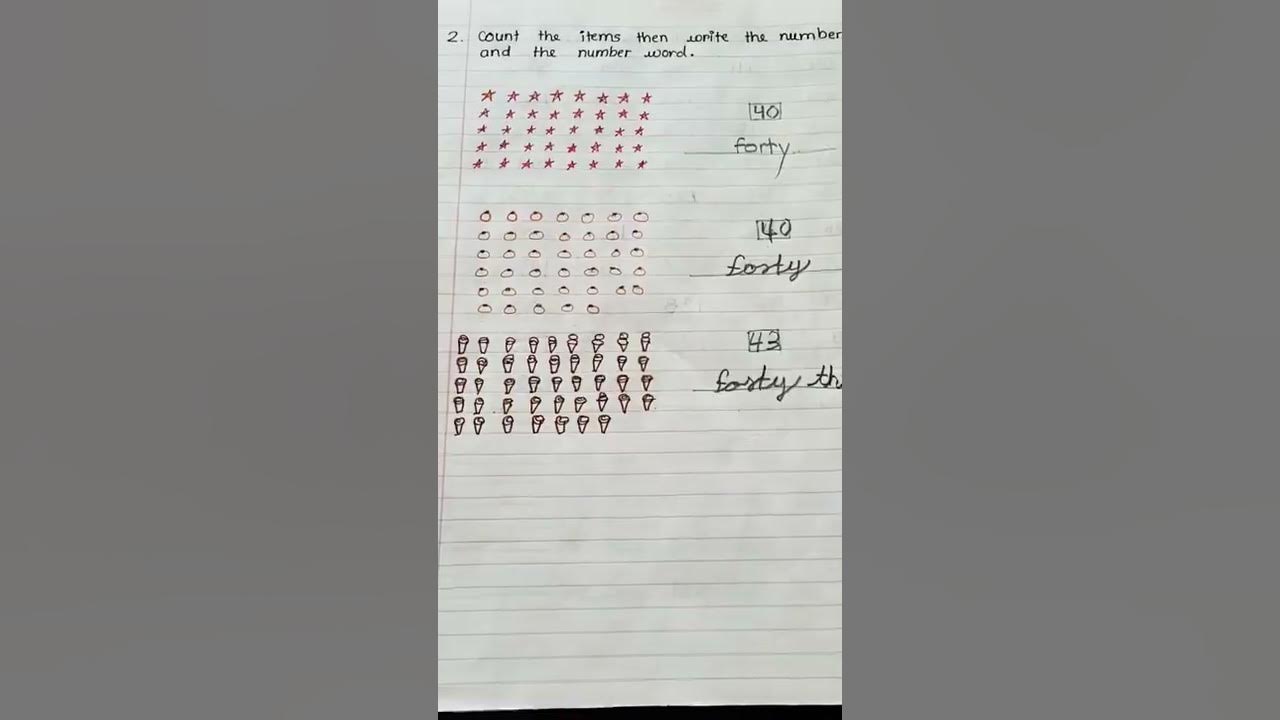 2. Count the items then write the number
and the number word.
40
forty
40
forty
43
forty th